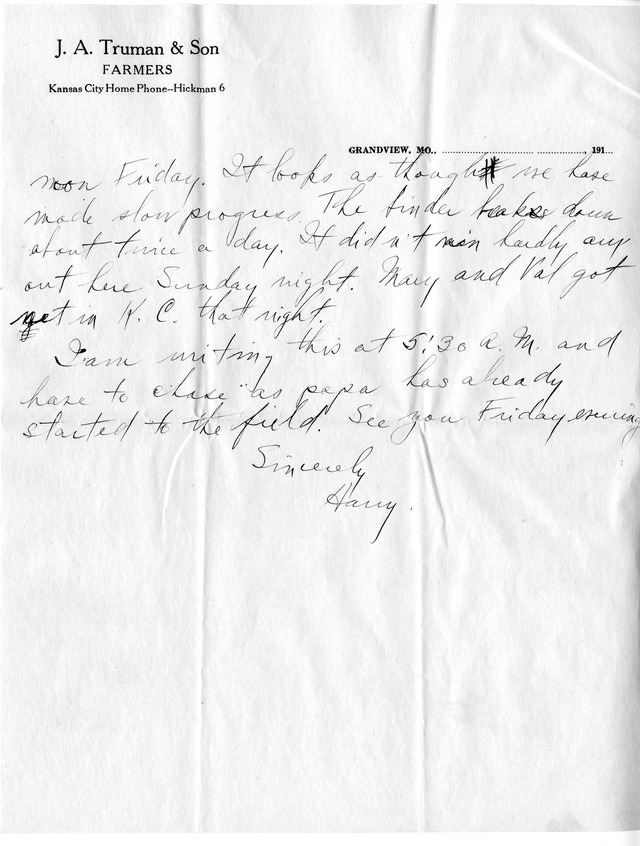 J. A. Truman & Son
FARMERS
Kansas City Home Phone--Hickman 6
GRANDVIEW, MO., ........................ 191...
noon Friday. It looks as though we have
made slow progress. The binder breaks down
about twice a day. It didn't rain hardly any
out here Sunday night. Mary and Val got
wet in K. C. that night.
I am writing this at 5:30 A. M. and
have to close as papa has already
started to the field. See you Friday evening
Sincerely
Harry.